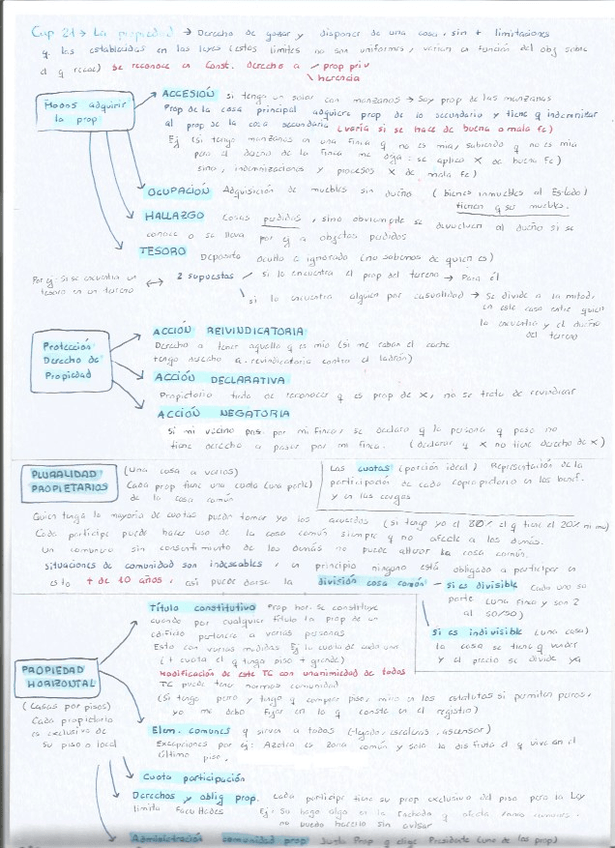 Cap 21 → La propiedad → Derecho de gozar y disponer de una cosa, sin + limitaciones
q las establecidas en las leyes (estos límites no son uniformes, varían en función del obj sobre
el q recae) Se reconoce en Const. Derecho a prop priv
herencia
Moons adquirir
la prop
ACCESIÓN si tengo un solar con manzanos → Soy prop de las manzanas
Prop de la cosa principal adquiere prop de lo secundario y tiene q indemnizar
al prop de la cosa secundaria (varía si se hace de buena o mala fe)
Ej (si tengo manzanos en una finca q no es mía, sabiendo q no es mía
pero el dueño de la finca me : se aplica X de buena fe)
sino, indemnizaciones y procesos X de mala fe)
OCUPACIÓN Adquisición de muebles sin dueño (bienes inmuebles al Estado)
tienen q ser muebles.
HALLAZGO Cosas perdidas, sino obviamente se devuelven al dueño si se
conoce o se lleva por ej a objetos perdidos
TESORO Deposito oculto e ignorado (no sabemos de quien es)
Por ej: Si se encuentra un
tesoro en un terreno
↔ 2 supuestos si lo encuentra el prop del terreno → Para él
si lo encuentra alguien por casualidad → Se divide a la mitad,
en este caso entre quien
lo encuentra y el dueño
del terreno
Protección
Derecho de
Propiedad
ACCIÓN REIVINDICATORIA
Derecho a tener aquello q es mío (si me roban el coche
tengo derecho a. reivindicatoria contra el ladrón)
ACCIÓN DECLARATIVA
Propietario trata de reconocer q es prop de X, no se trata de reivindicar
ACCIÓN NEGATORIA
Si mi vecino pasa por mi finca, se declara q la persona q pasa no
tiene derecho a pasar por mi finca. (declarar q X no tiene derecho de X)
PLURALIDAD
PROPIETARIOS
(una cosa a varios)
Cada prop tiene una cuota (una parte)
de la cosa común
Las cuotas (porción ideal) Representación de la
participación de cada copropietario en los benef.
y en las cargas
Quien tenga la mayoría de cuotas puede tomar los acuerdos (si tengo yo el 80% el q tiene el 20% ni mu)
Cada partícipe puede hacer uso de la cosa común siempre q no afecte a los demás.
Un comunero sin consentimiento de los demás no puede alterar la cosa común.
Situaciones de comunidad son indeseables, en principio ninguno está obligado a participar en
esto + de 10 años, así puede darse la división cosa común – Si es divisible Cada uno su
parte (una finca y son 2
al 50/50)
Si es indivisible (una cosa)
la cosa se tiene q vender
y el precio se divide ya
PROPIEDAD
HORIZONTAL
(Casas por pisos)
Cada propietario
es exclusivo de
su piso o local
Título constitutivo Prop hor. se constituye
cuando por cualquier título la prop de un
edificio pertenece a varias personas
Esto con varias medidas Ej la cuota de cada uno
(+ cuota el q tenga piso + grande)
Modificación de este TC con unanimidad de todos
TC puede tener normas comunidad
(Si tengo perro y tengo q comprar piso, miro en los estatutos si permiten perros,
yo me debo fijar en lo q conste en el registro)
Elem. comunes q sirven a todos (tejado, escaleras, ascensor)
Excepciones por ej: Azotea es zona común y solo la disfruta el q vive en el
último piso.
Cuota participación
Derechos y oblig prop. Cada partícipe tiene su prop exclusiva del piso pero la Ley
limita facultades Ej. Si hago algo en la fachada q afecta zonas comunes.
no puedo hacerlo sin avisar
Administración comunidad prop Junta Prop q elige Presidente (uno de los prop)